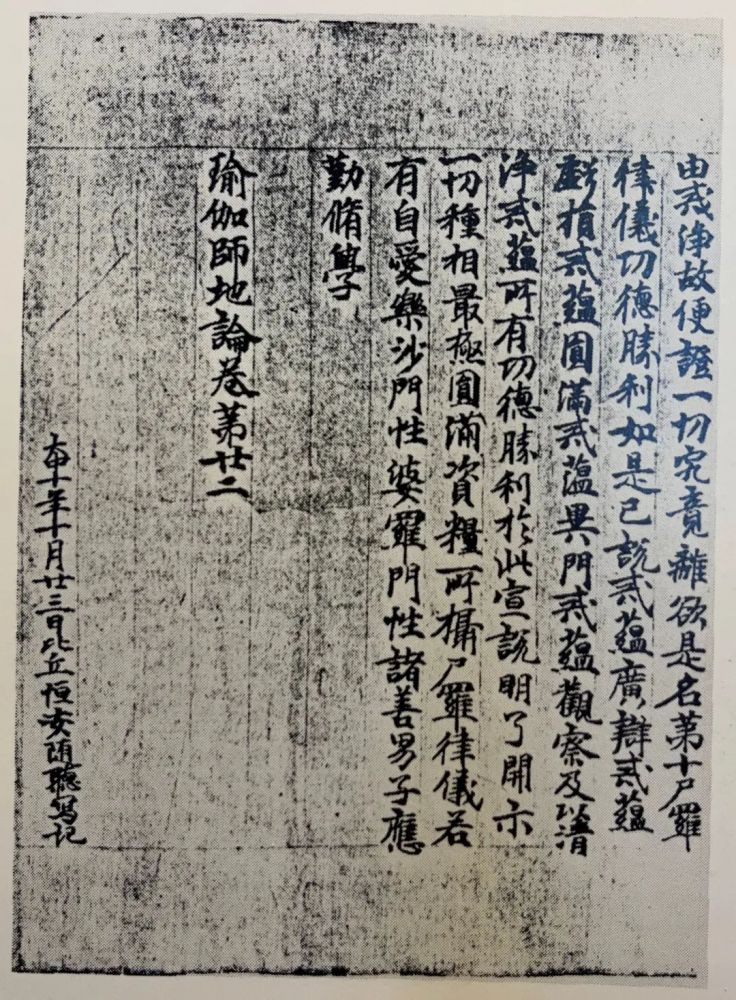 由戒淨故便證一切究竟離欲是名第十尸羅
律儀功德勝利如是已說戒蘊廣辯戒蘊
虧損戒蘊圓滿戒蘊異門戒蘊觀察及以清
淨戒蘊所有功德勝利於此宣說明了開示
一切種相最極圓滿資糧所攝尸羅律儀若
有自愛樂沙門性婆羅門性諸善男子應
勤脩學
瑜伽師地論卷第廿二
大中十年十月廿三日比丘恒安随聽寫記